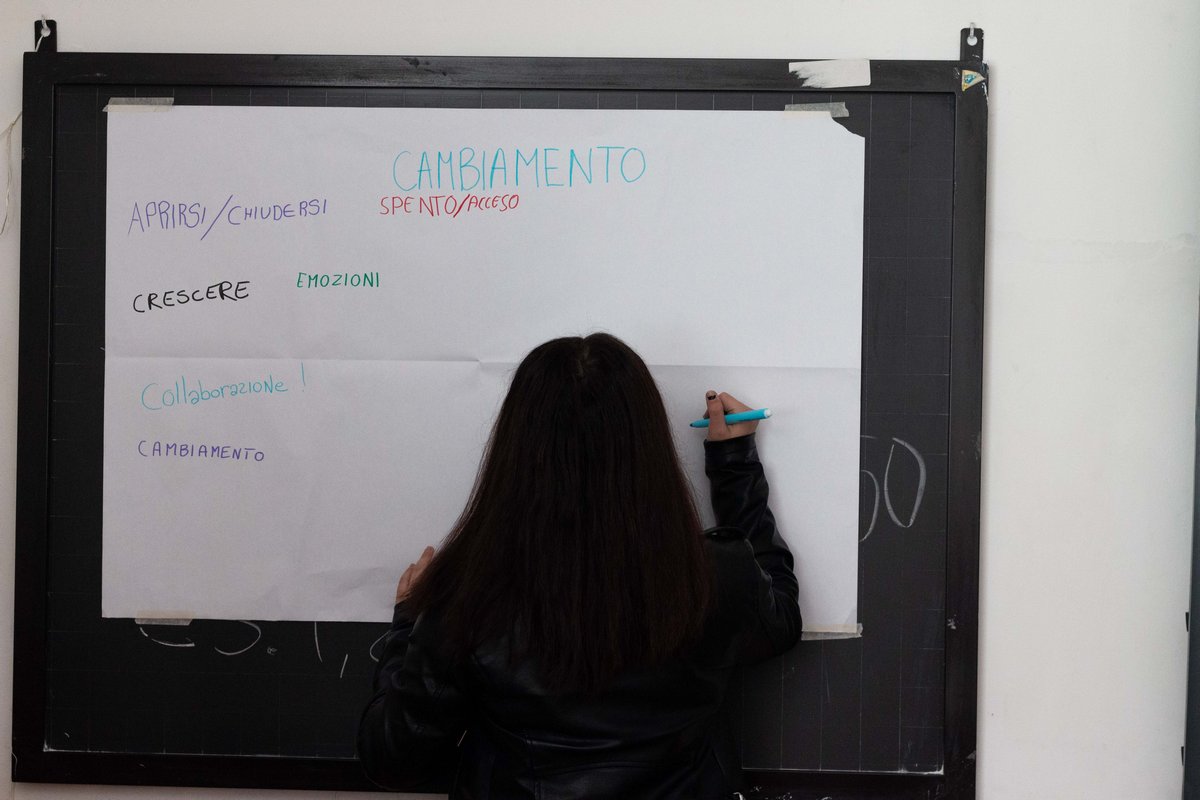 CAMBIAMENTO
APRIRSI/CHIUDERSI SPENTO/ACCESO
CRESCERE EMOZIONI
Collaborazione!
CAMBIAMENTO